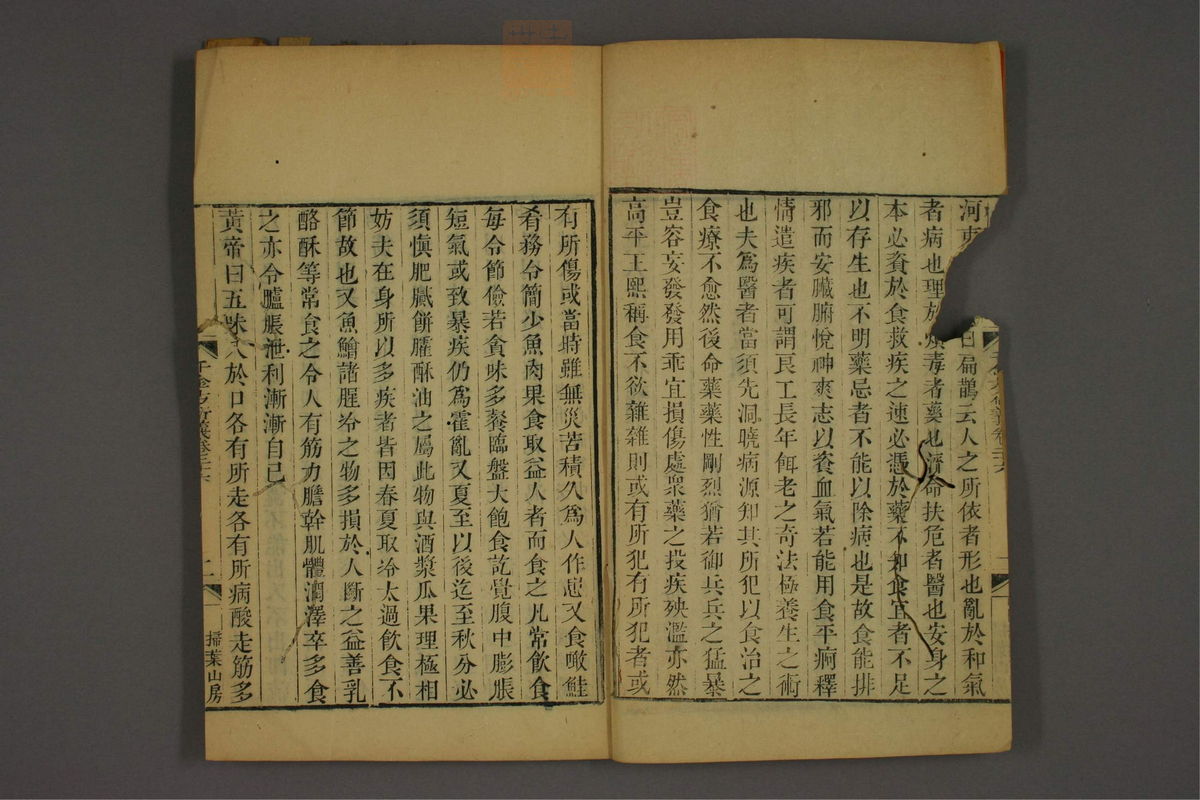 河東 曰扁鵲云人之所依者形也亂於和氣
者病也理於煩毒者藥也濟命扶危者醫也安身之
本必資於食救疾之速必憑於藥不知食宜者不足
以存生也不明藥忌者不能以除病也是故食能排
邪而安臟腑悅神爽志以資血氣若能用食平痾釋
情遣疾者可謂良工長年餌老之奇法極養生之術
也夫爲醫者當須先洞曉病源知其所犯以食治之
食療不愈然後命藥藥性剛烈猶若御兵兵之猛暴
豈容妄發發用乖宜損傷處衆藥之投疾殃濫亦然
高平王熙稱食不欲雜雜則或有所犯有所犯者或
有所傷或當時雖無災苦積久爲人作患又食噉鮭
肴務令簡少魚肉果食取益人者而食之凡常飲食
每令節儉若貪味多餐臨盤大飽食訖覺腹中膨脹
短氣或致暴疾仍爲霍亂又夏至以後迄至秋分必
須愼肥膩餅臛酥油之屬此物與酒漿瓜果理極相
妨夫在身所以多疾者皆因春夏取冷太過飲食不
節故也又魚鱠諸腥冷之物多損於人斷之益善乳
酪酥等常食之令人有筋力膽幹肌體潤澤卒多食
之亦令臚脹泄利漸漸自已
黃帝曰五味入於口各有所走各有所病酸走筋多
千金方衍義卷二十六
二
掃葉山房